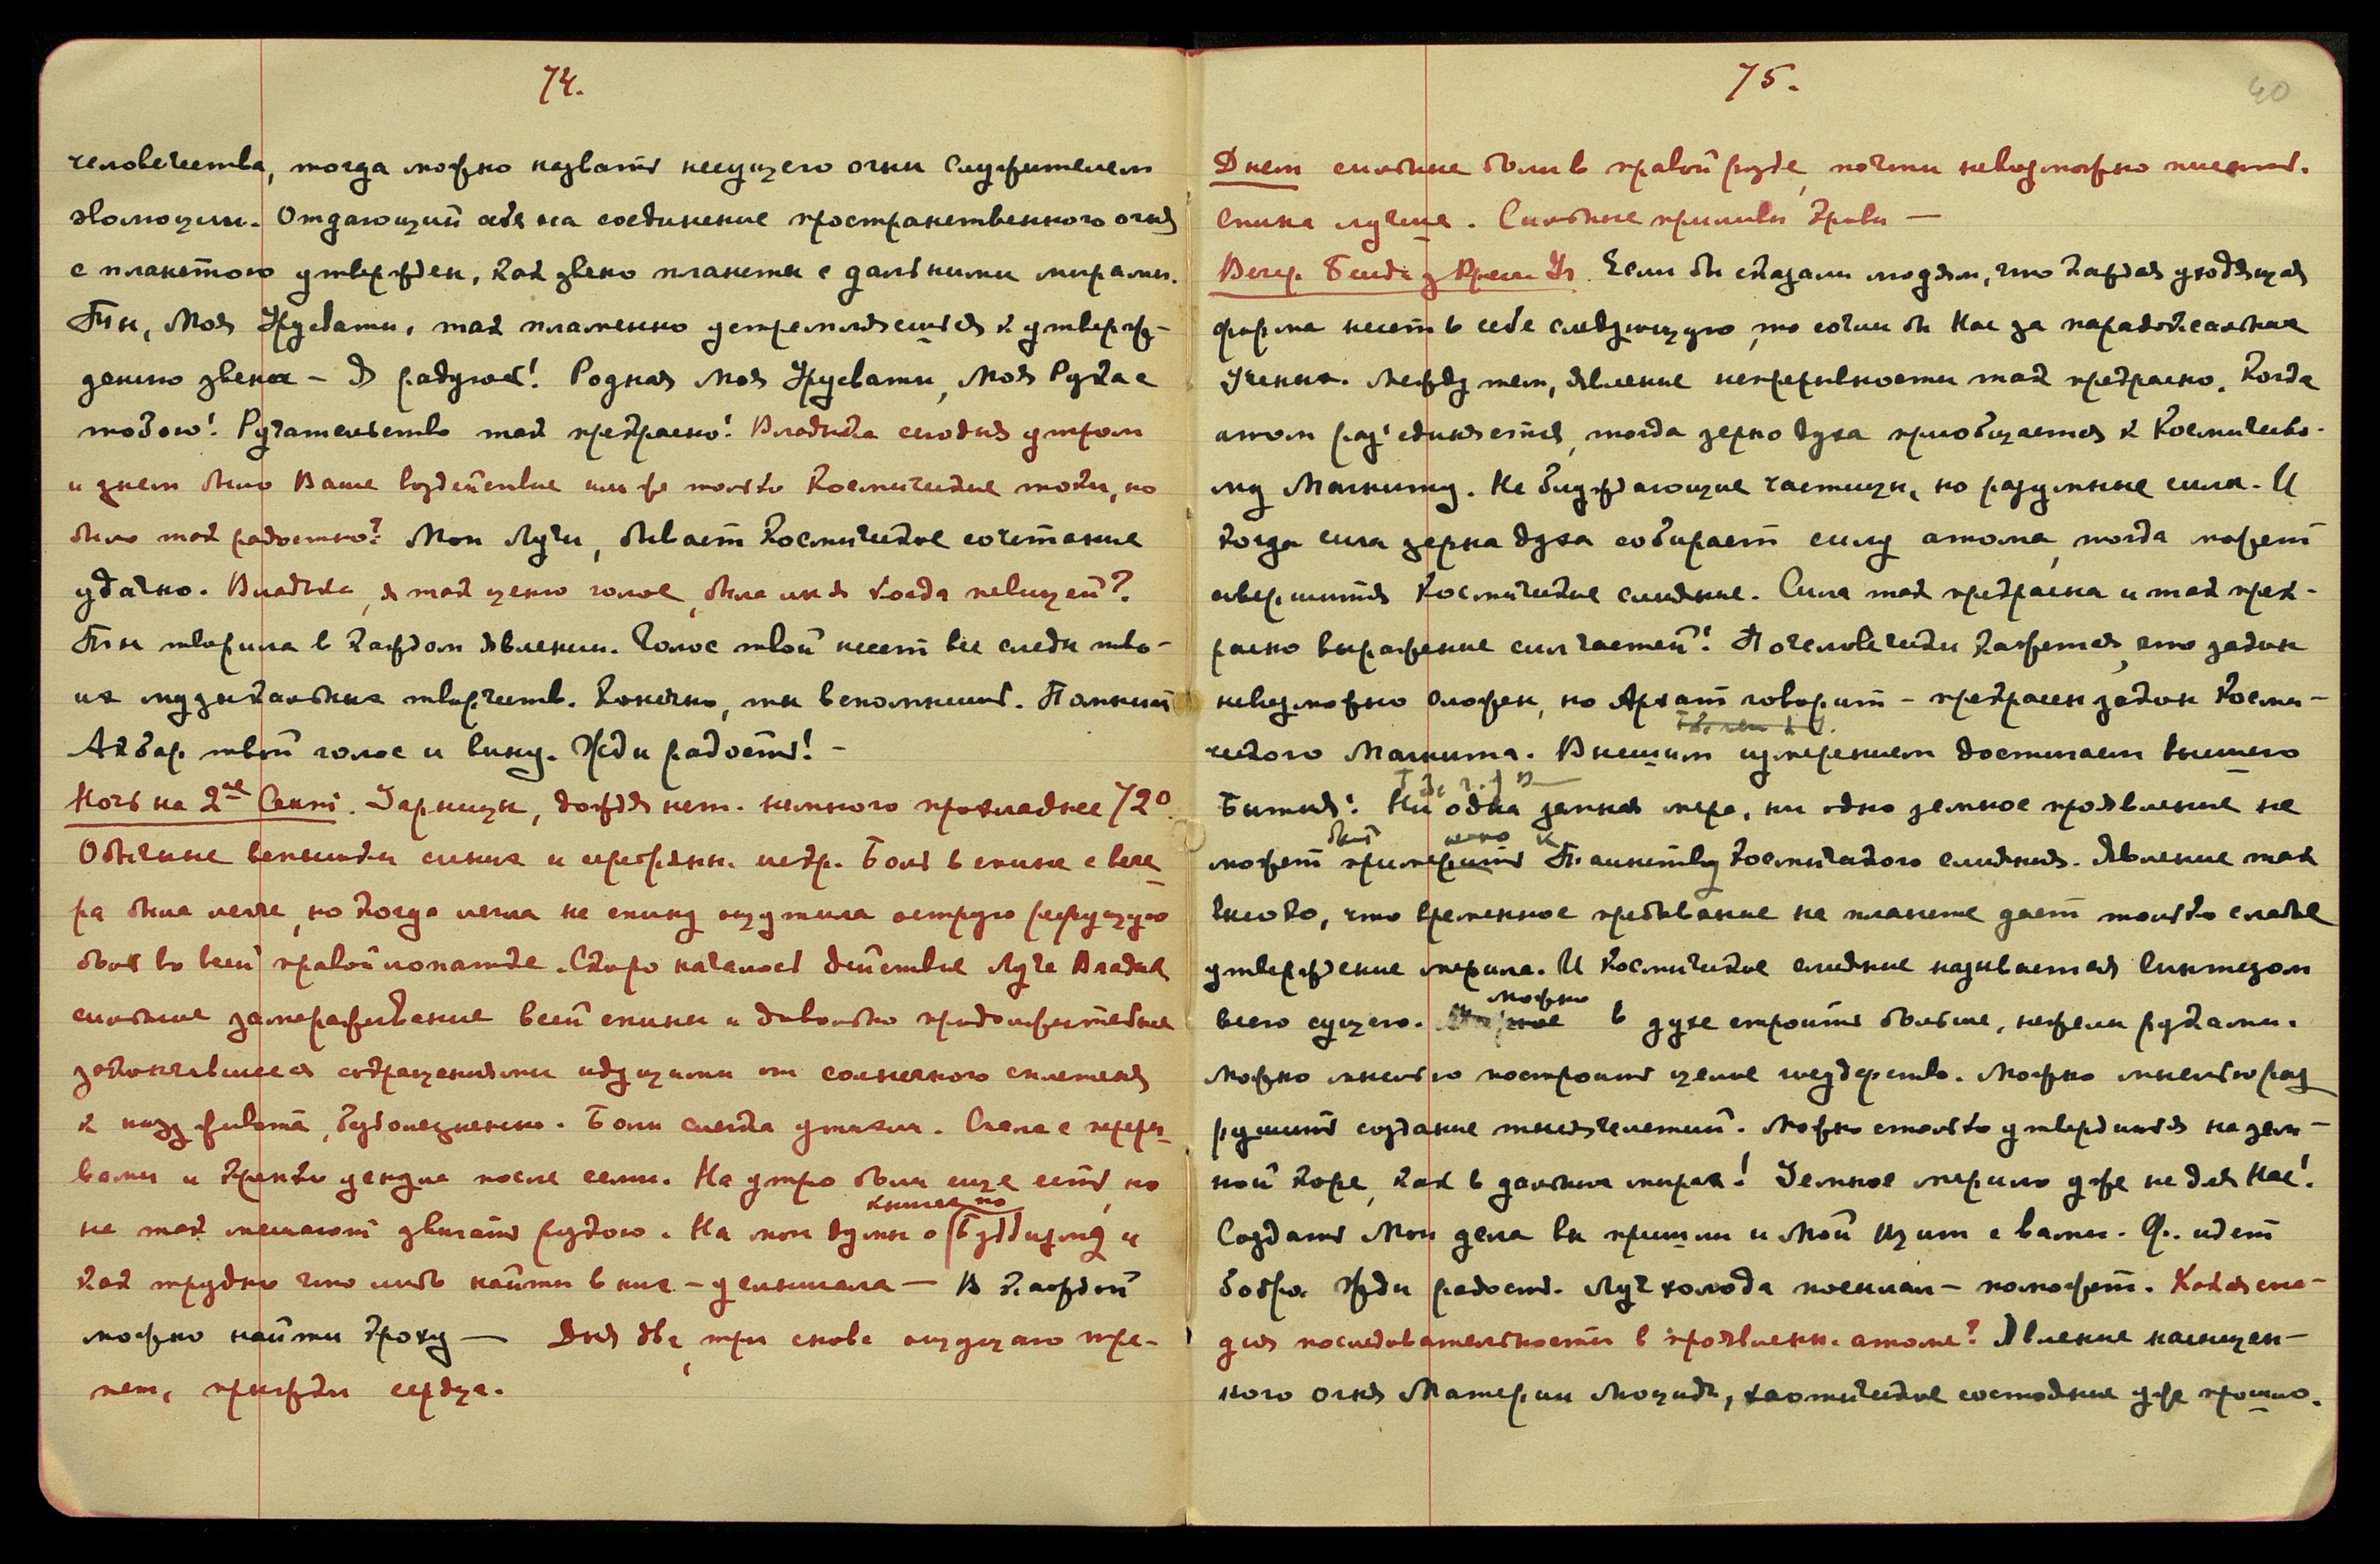 74.
человечества, тогда можно назвать несущего огни Служителем
эволюции. Отдающий себя на соединение пространственного огня
с планетою утвержден, как звено планеты с дальними мирами.
Ты, Моя Урусвати, так пламенно устремляешься к утверж-
дению звена – Я радуюсь! Родная Моя Урусвати, Моя Рука с
тобою! Ручательство так прекрасно! Владыка сегодня утром
и днем было Ваше воздействие или же только Космические токи, но
было так радостно? Мои Лучи, бывает Космическое сочетание
удачно. Владыка, я так ценю голос, была ли я когда певицей?
Ты творила в каждом явлении. Голос твой несет все следы тво-
их музыкальных творчеств. Конечно, ты вспомнишь. Помнит
Акбар твой голос и вину. Жди радость! –
Ночь на 2ое Сент. Зарницы, дождя нет. немного прохладнее 72°.
Обычные вспышки синие и серебрян. искр. Боль в спине с вече
ра была легче, но когда легла на спину ощутила острую режущую
боль во всей правой лопатке. Скоро началось действие Луча Владык
сильные замораживание всей спины и довольно продолжительные
закончившееся сокращениями идущими от солнечного сплетения
к низу живота, безболезненно. Боли слегка утихли. Спала с переры
вами и крепко уснула после семи. На утро боли еще есть, но
не так мешают двигать рукою. На мои думы о книгах по Буддизму и
как трудно что либо найти в них – услышала — В каждой
можно найти кроху — Дня два, три снова ощущаю тре-
пет, прыжки сердца.
75. 40
Днем сильные боли в правой руке, почти невозможно писать.
Спина лучше. Сильные приливы крови —
Вечер. Если бы сказали людям, что каждая уходящая
форма несет в себе следующую, то сочли бы Нас за парадоксальных
Ученых. Между тем, явление непрерывности так прекрасно. Когда
атом раз'единяется, тогда зерно духа приобщается к Космическо-
му Магниту. Не блуждающие частицы, но разумные силы. И
когда сила зерна духа собирает силу атома, тогда может
свершиться Космическое слияние. Сила так прекрасна и так прек-
расно выражение сил частей! По человечески кажется, что закон
невозможно сложен, но Архат говорит – прекрасен закон Косми-
ческого Магнита. Высшим измерением достигаем высшего
Бытия! Ни одна земная мера, ни одно земное проявление не
может быть применено к Таинству Космического слияния. Явление так
высоко, что временное пребывание на планете дает только слабое
утверждение мерила. И Космическое слияние называется Синтезом
всего сущего. Можно в духе строить больше, нежели руками.
Можно мыслью построить целое государство. Можно мыслью раз
рушить создание тысячелетий. Можно столько утвердиться на зем-
ной коре, как в дальних мирах! Земное мерило уже не для Нас!
Создать Мои дела вы пришли и Мой Щит с вами. Ф. идет
бодро. Жди радость. Луч холода посылал – поможет. Какая ста-
дия последовательности в проявлен. атоме? Явление насыщен-
ного огня Материи Люциды, хаотическое состояние уже прошло.